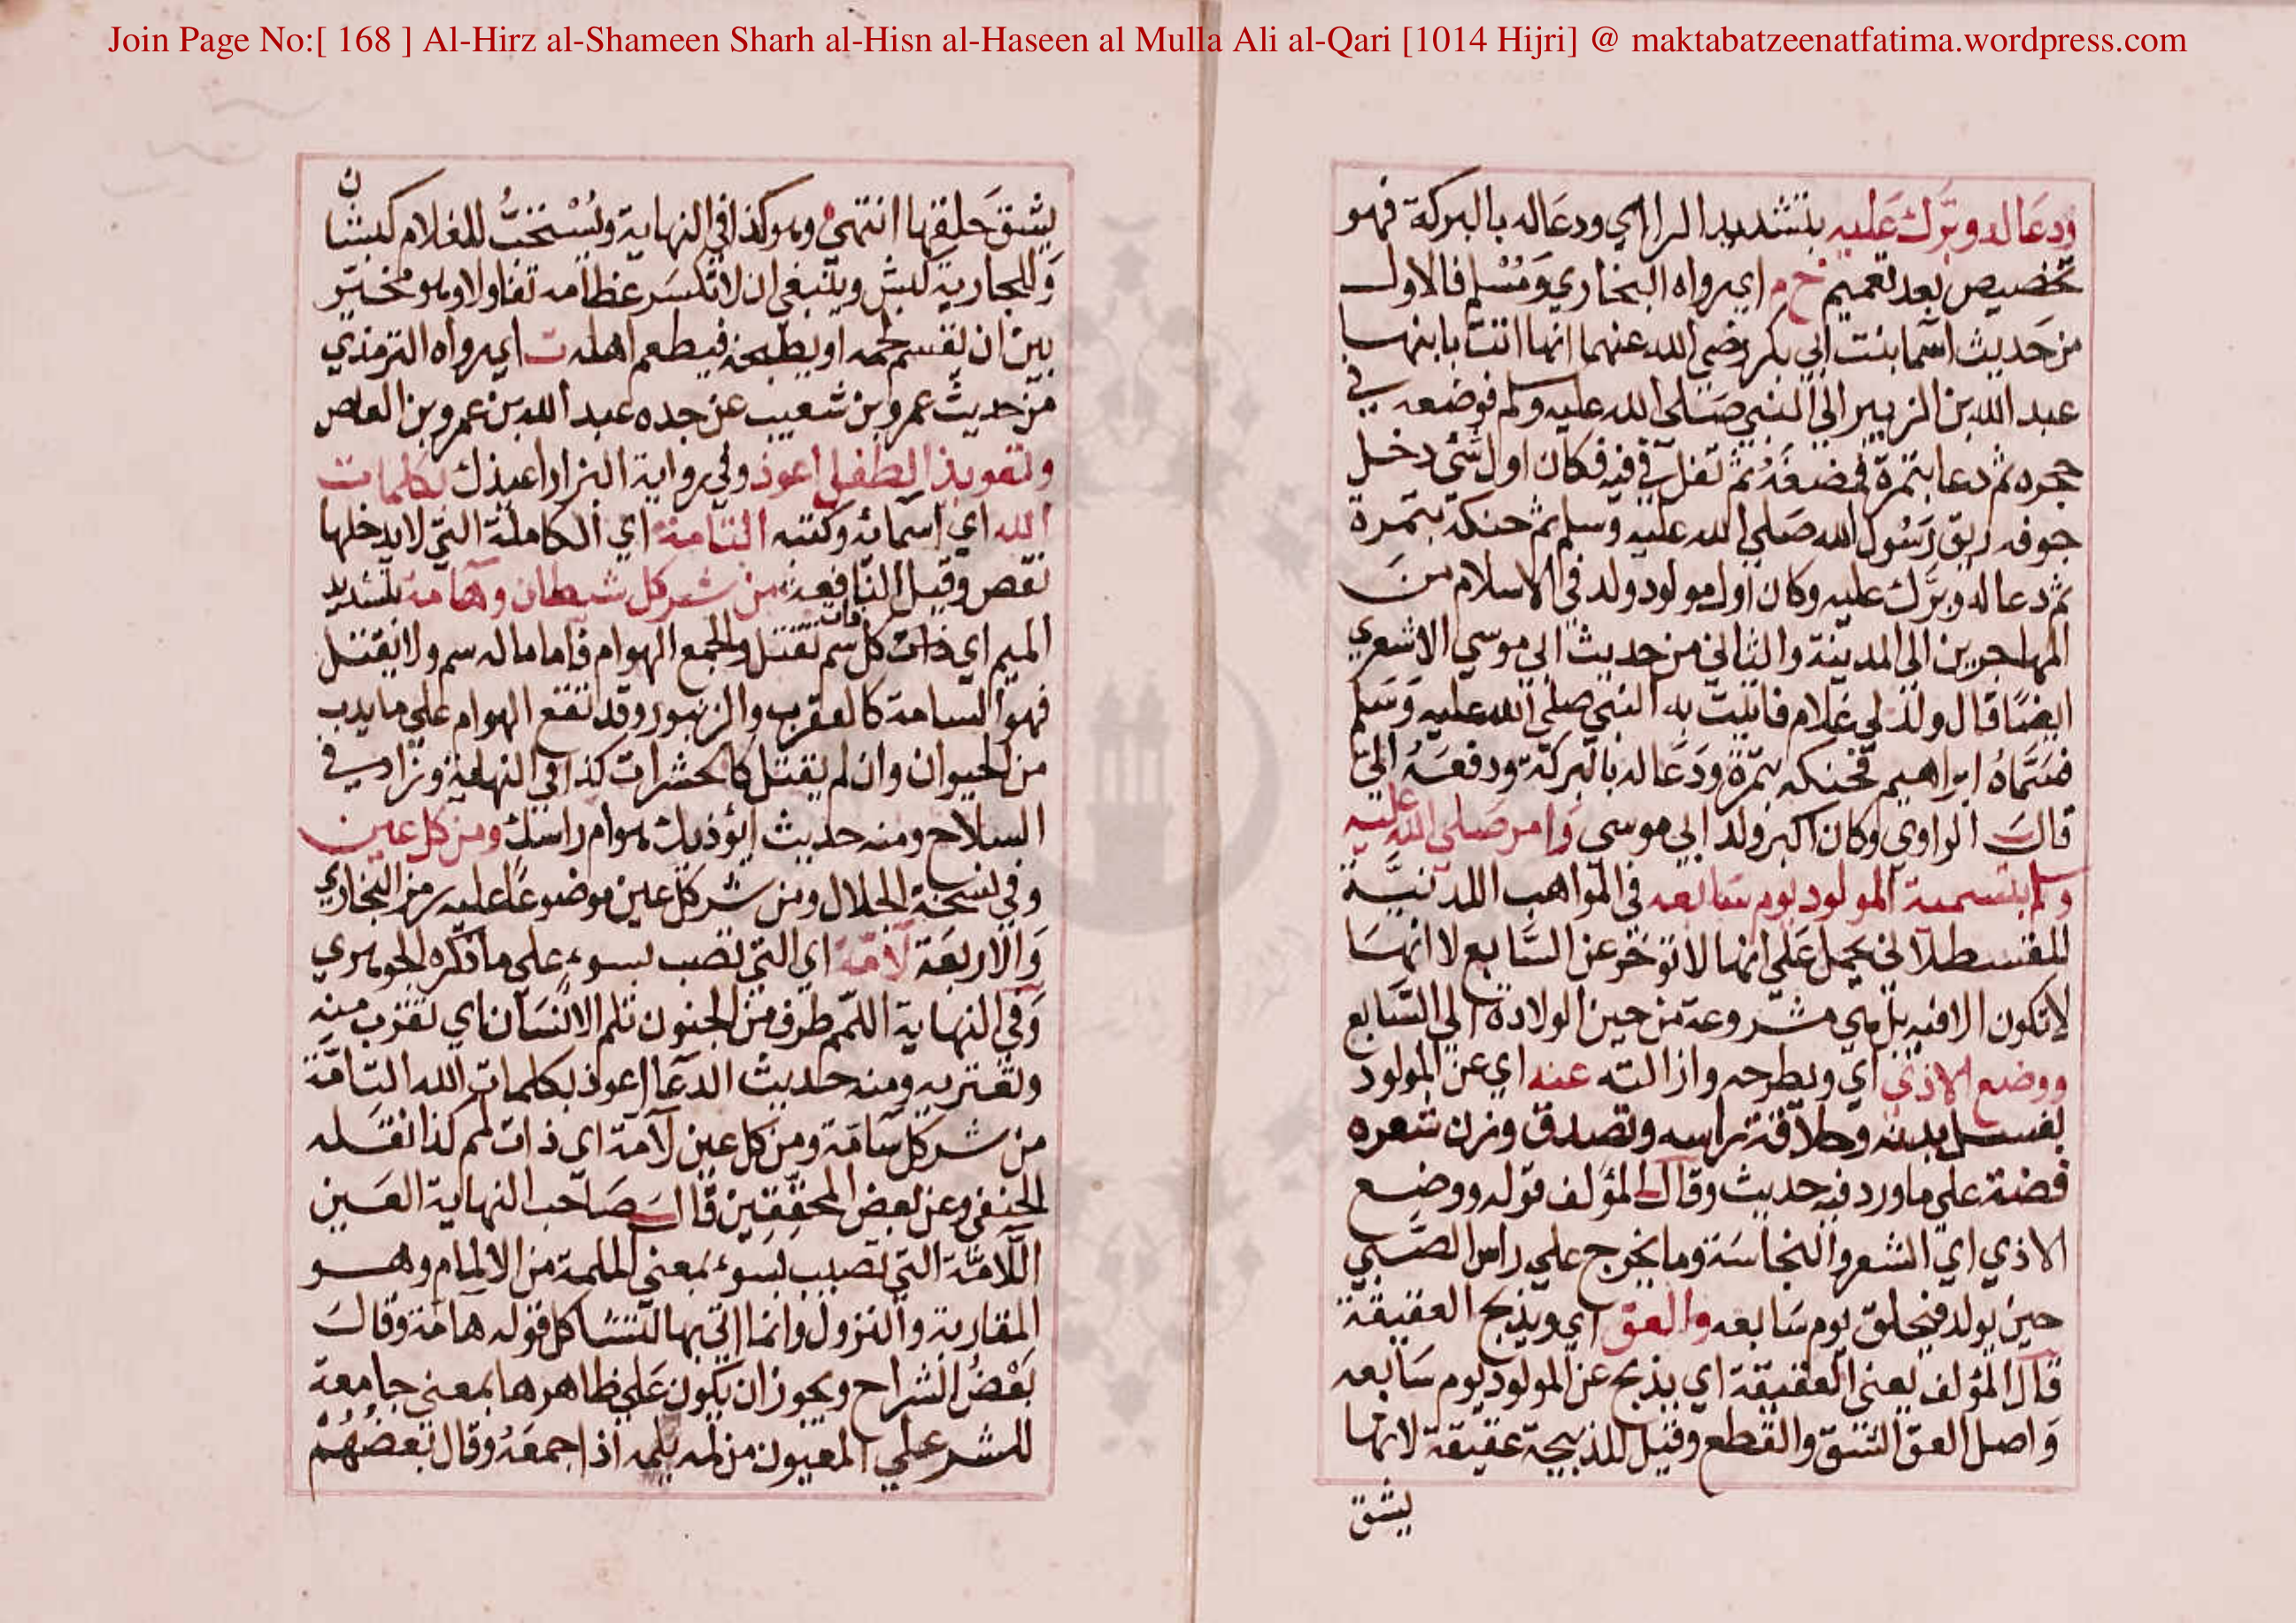 Join Page No:[ 168 ] Al-Hirz al-Shameen Sharh al-Hisn al-Haseen al Mulla Ali al-Qari [1014 Hijri] @ maktabatzeenatfatima.wordpress.com
ودعا له وبرّك عليه بتشديد الراء اي ودعا له بالبركة فهو
تخصيص بعد تعميم خ م اي رواه البخاري ومسلم فالاول
من حديث اسما بنت ابي بكر رضي الله عنهما انها اتت بابنها
عبد الله بن الزبير الي النبي صلي الله عليه وسلم فوضعه في
حجره ثم دعا بتمرة فمضغه ثم تفل في فيه فكان اول شئ دخل
جوفه ريق رسول الله صلي الله عليه وسلم ثم حنكه بتمرة
ثم دعا له وبرّك عليه وكان اول مولود ولد في الاسلام من
المهاجرين الي المدينة والثاني من حديث ابي موسي الاشعري
ايضا قال ولد لي غلام فاتيت به النبي صلي الله عليه وسلم
فسمّاه ابراهيم فحنكه بتمرة ودعا له بالبركة ودفعه اليّ
قال الراوي وكان اكبر ولد ابي موسي وامر صلي الله عليه
وسلم بتسمية المولود يوم سابعه في المواهب اللدنيّة
للقسطلاني يحمل علي انها لا تؤخر عن السابع لا انها
لا تكون الا فيه بل هي مشروعة من حين الولادة الي السّابع
ووضع الاذي اي ويطرحه وازالته عنه اي عن المولود
بغسل بدنه وحلاقة راسه وتصدق وزن شعره
فضة علي ما ورد فيه حديث وقال المؤلف قوله ووضع
الاذي اي الشعر والنجاسة وما يخرج علي راس الصّبي
حين يولد فيحلق يوم سابعه والعق اي ويذبح العقيقة
قال المؤلف يعني العقيقة اي يذبح عن المولود يوم سابعه
واصل العق الشق والقطع وقيل للذبيحة عقيقة لانها
يشق
يشق حلقها انتهي وهو كذا في النهاية ويستحبّ للغلام كبشان
وللجارية كبش وينبغي ان لا تكسر عظامه تفاولا وهو مخير
بين ان يقسم لحمه او يطبخه فيطعم اهله ت اي رواه الترمذي
من حديث عمرو بن شعيب عن جده عبد الله بن عمرو بن العاص
وتعويذ الطفل اعوذ وفي رواية البزار اعيذك بكلمات
الله اي اسمائه وكتبه التامة اي الكاملة التي لا يدخلها
نقص وقيل النافعة من شر كل شيطان وهامة بتشديد
الميم اي ذات كل سم تقتل والجمع الهوام فاما ماله سم ولا يقتل
فهو السامة كالعقرب والزنبور وقد تقع الهوام علي ما يدب
من الحيوان وان لم يقتل كالحشرات كذا في النهاية وزاد في
السلاح ومنه حديث ايؤذيك هوام راسك ومن كل عين
وفي نسخة الجلال ومن شر كل عين موضوعا عليه رمز البخاري
والاربعة لامّة اي التي تصب بسوء علي ما ذكره الجوهري
وفي النهاية اللمم طرف من الجنون تلم الانسان اي تقرب منه
وتعتريه ومنه حديث الدعا اعوذ بكلمات الله التامّة
من شر كل سامّة ومن كل عين لامة اي ذات لمم كذا نقله
الحنفي وعن بعض المحققين قال صاحب النهاية العين
اللامّة التي تصيب بسوء بمعني الملمة من الالمام وهو
المقاربة والنزول وانما اتي بها لتشاكل قوله هامة وقال
بعض الشراح ويجوز ان يكون علي ظاهرها بمعني جامعة
للشر علي المعيون من لمه يلمه اذا جمعه وقال بعضهم